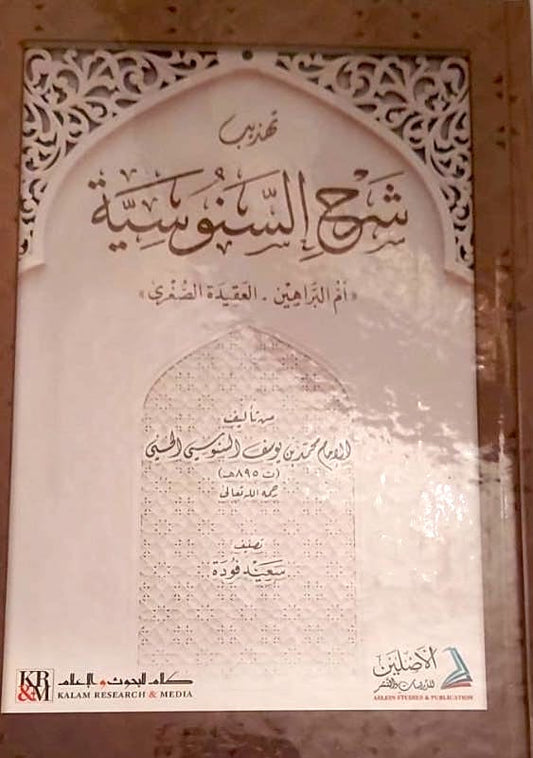 تهذيب
شرح السنوسية
«أم البراهين - العقيدة الصغرى»
من تأليف
الإمام محمد بن يوسف السنوسي الحسني
(ت ٨٩٥هـ)
رحمه الله تعالى
تصنيف
سعيد فودة
KR&M
كلام للبحوث والإعلام
KALAM RESEARCH & MEDIA
الأصلين
للدراسات والنشر
ASLEIN STUDIES & PUBLICATION